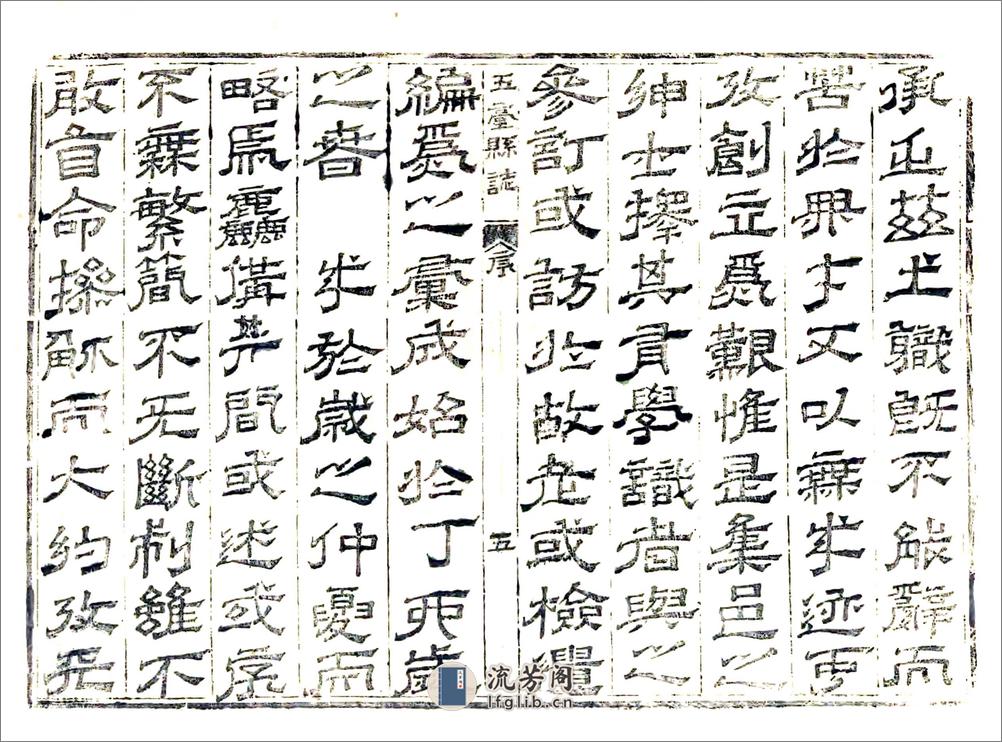 承乏茲土職既不能辭而
苦於才又以無成迹可
攷創立爲艱惟是集邑之
紳士擇其有學識者與之
參訂或訪於故老或檢遺
五臺縣誌 序 五
編爲之彙成始於丁卯歲
之春 成於歲之仲夏而
略焉麤備其間或述或
不無繁簡不无斷制雖不
敢自命操觚而大約攷
流芳阁
lfglib.cn